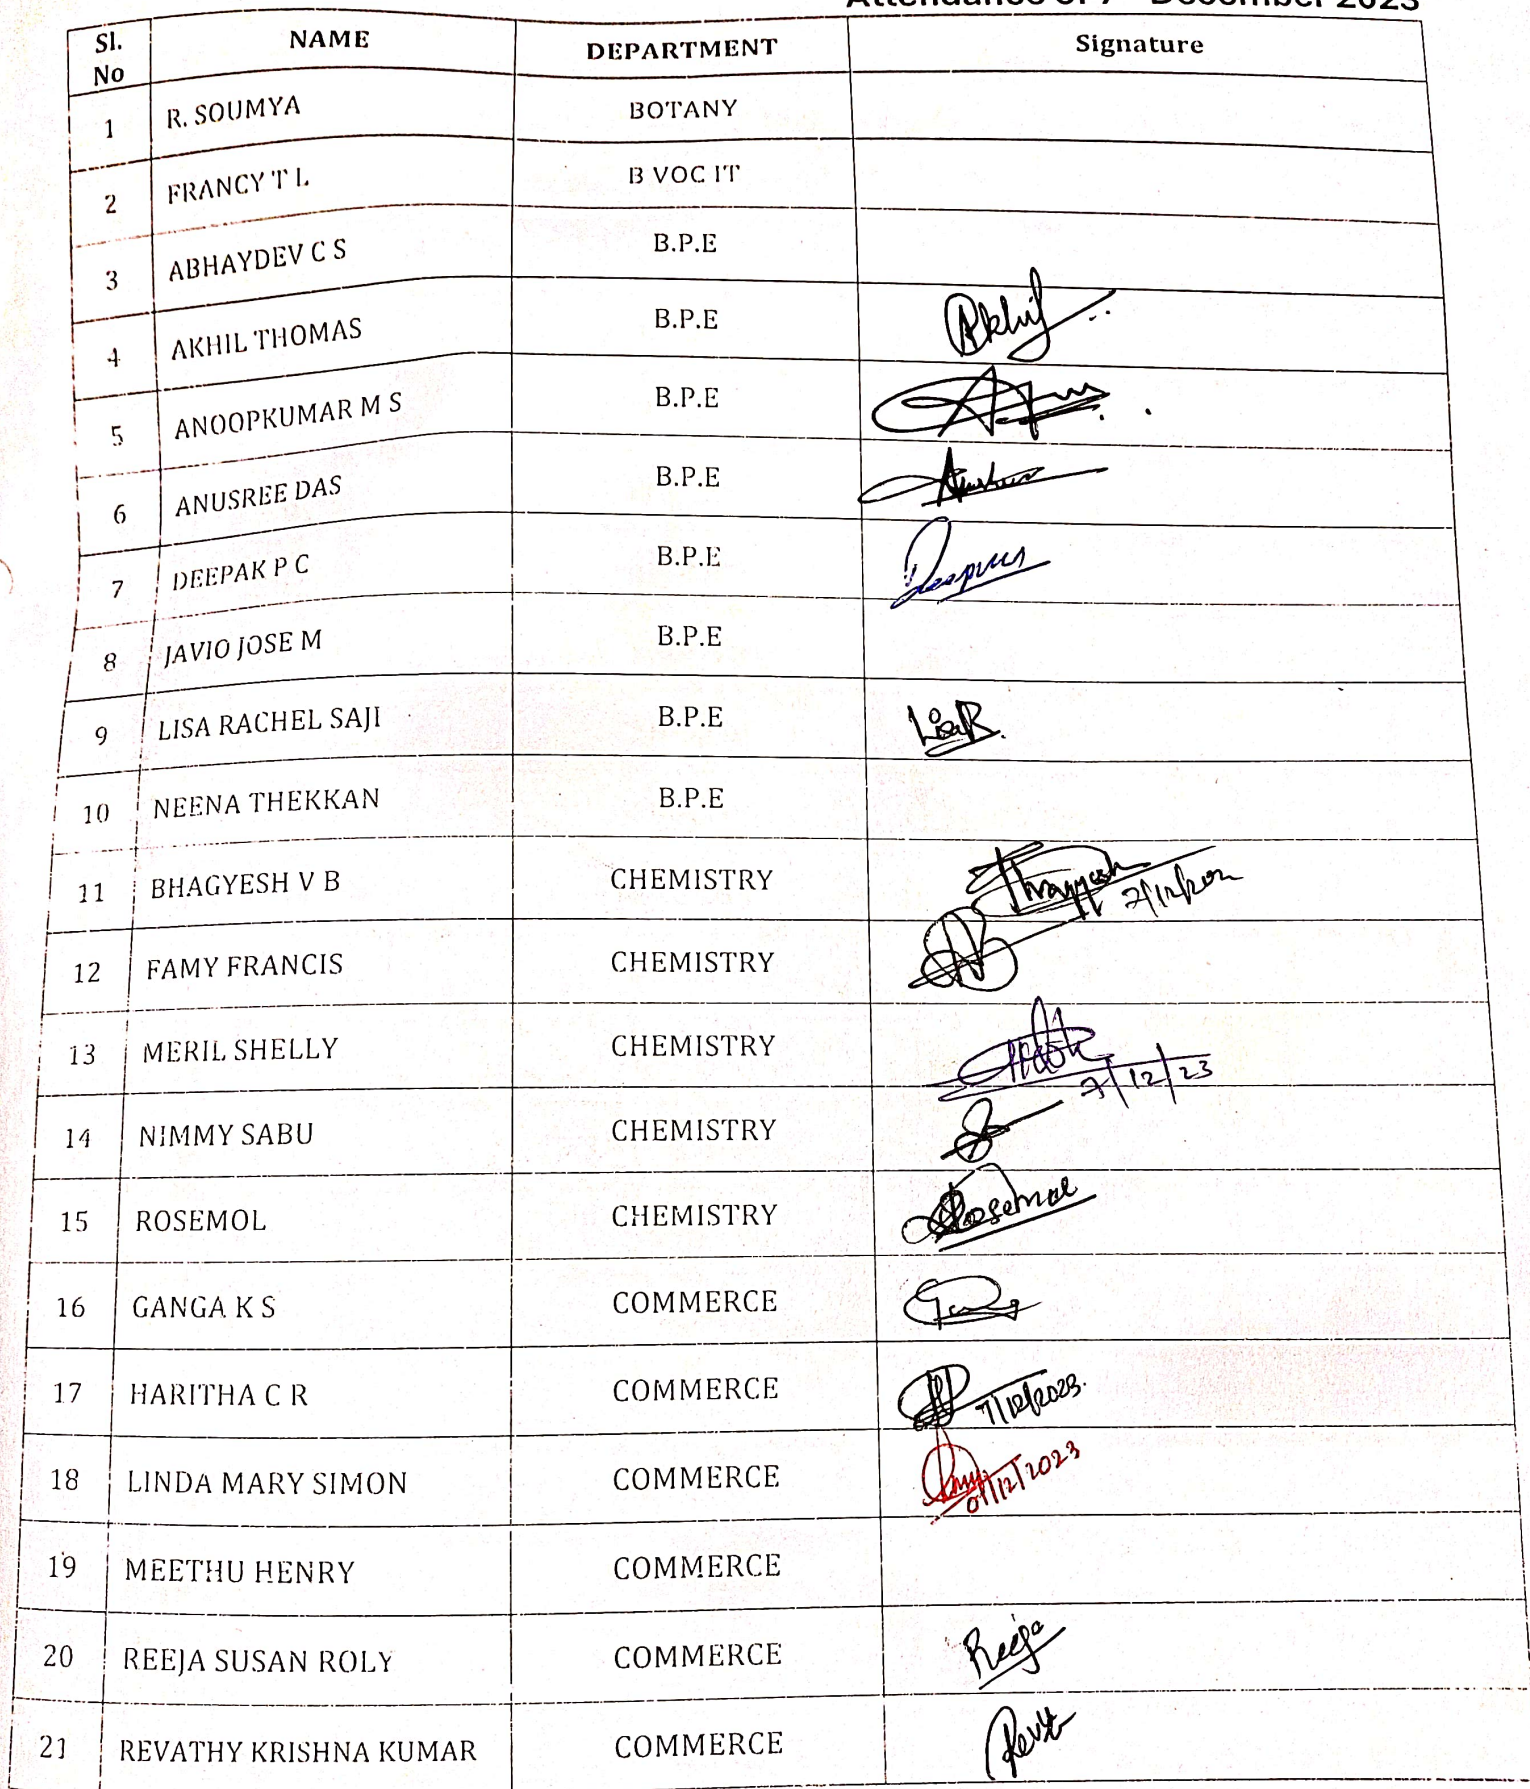 Attendance of 7 December 2023
Sl. No NAME DEPARTMENT Signature
1 R. SOUMYA BOTANY
2 FRANCY T L B VOC IT
3 ABHAYDEV C S B.P.E
4 AKHIL THOMAS B.P.E Akhil
5 ANOOPKUMAR M S B.P.E
6 ANUSREE DAS B.P.E
7 DEEPAK P C B.P.E
8 JAVIO JOSE M B.P.E
9 LISA RACHEL SAJI B.P.E LisaR.
10 NEENA THEKKAN B.P.E
11 BHAGYESH V B CHEMISTRY
12 FAMY FRANCIS CHEMISTRY
13 MERIL SHELLY CHEMISTRY 7/12/23
14 NIMMY SABU CHEMISTRY
15 ROSEMOL CHEMISTRY Rosemol
16 GANGA K S COMMERCE
17 HARITHA C R COMMERCE 7/12/2023.
18 LINDA MARY SIMON COMMERCE 07/12/2023
19 MEETHU HENRY COMMERCE
20 REEJA SUSAN ROLY COMMERCE Reeja
21 REVATHY KRISHNA KUMAR COMMERCE